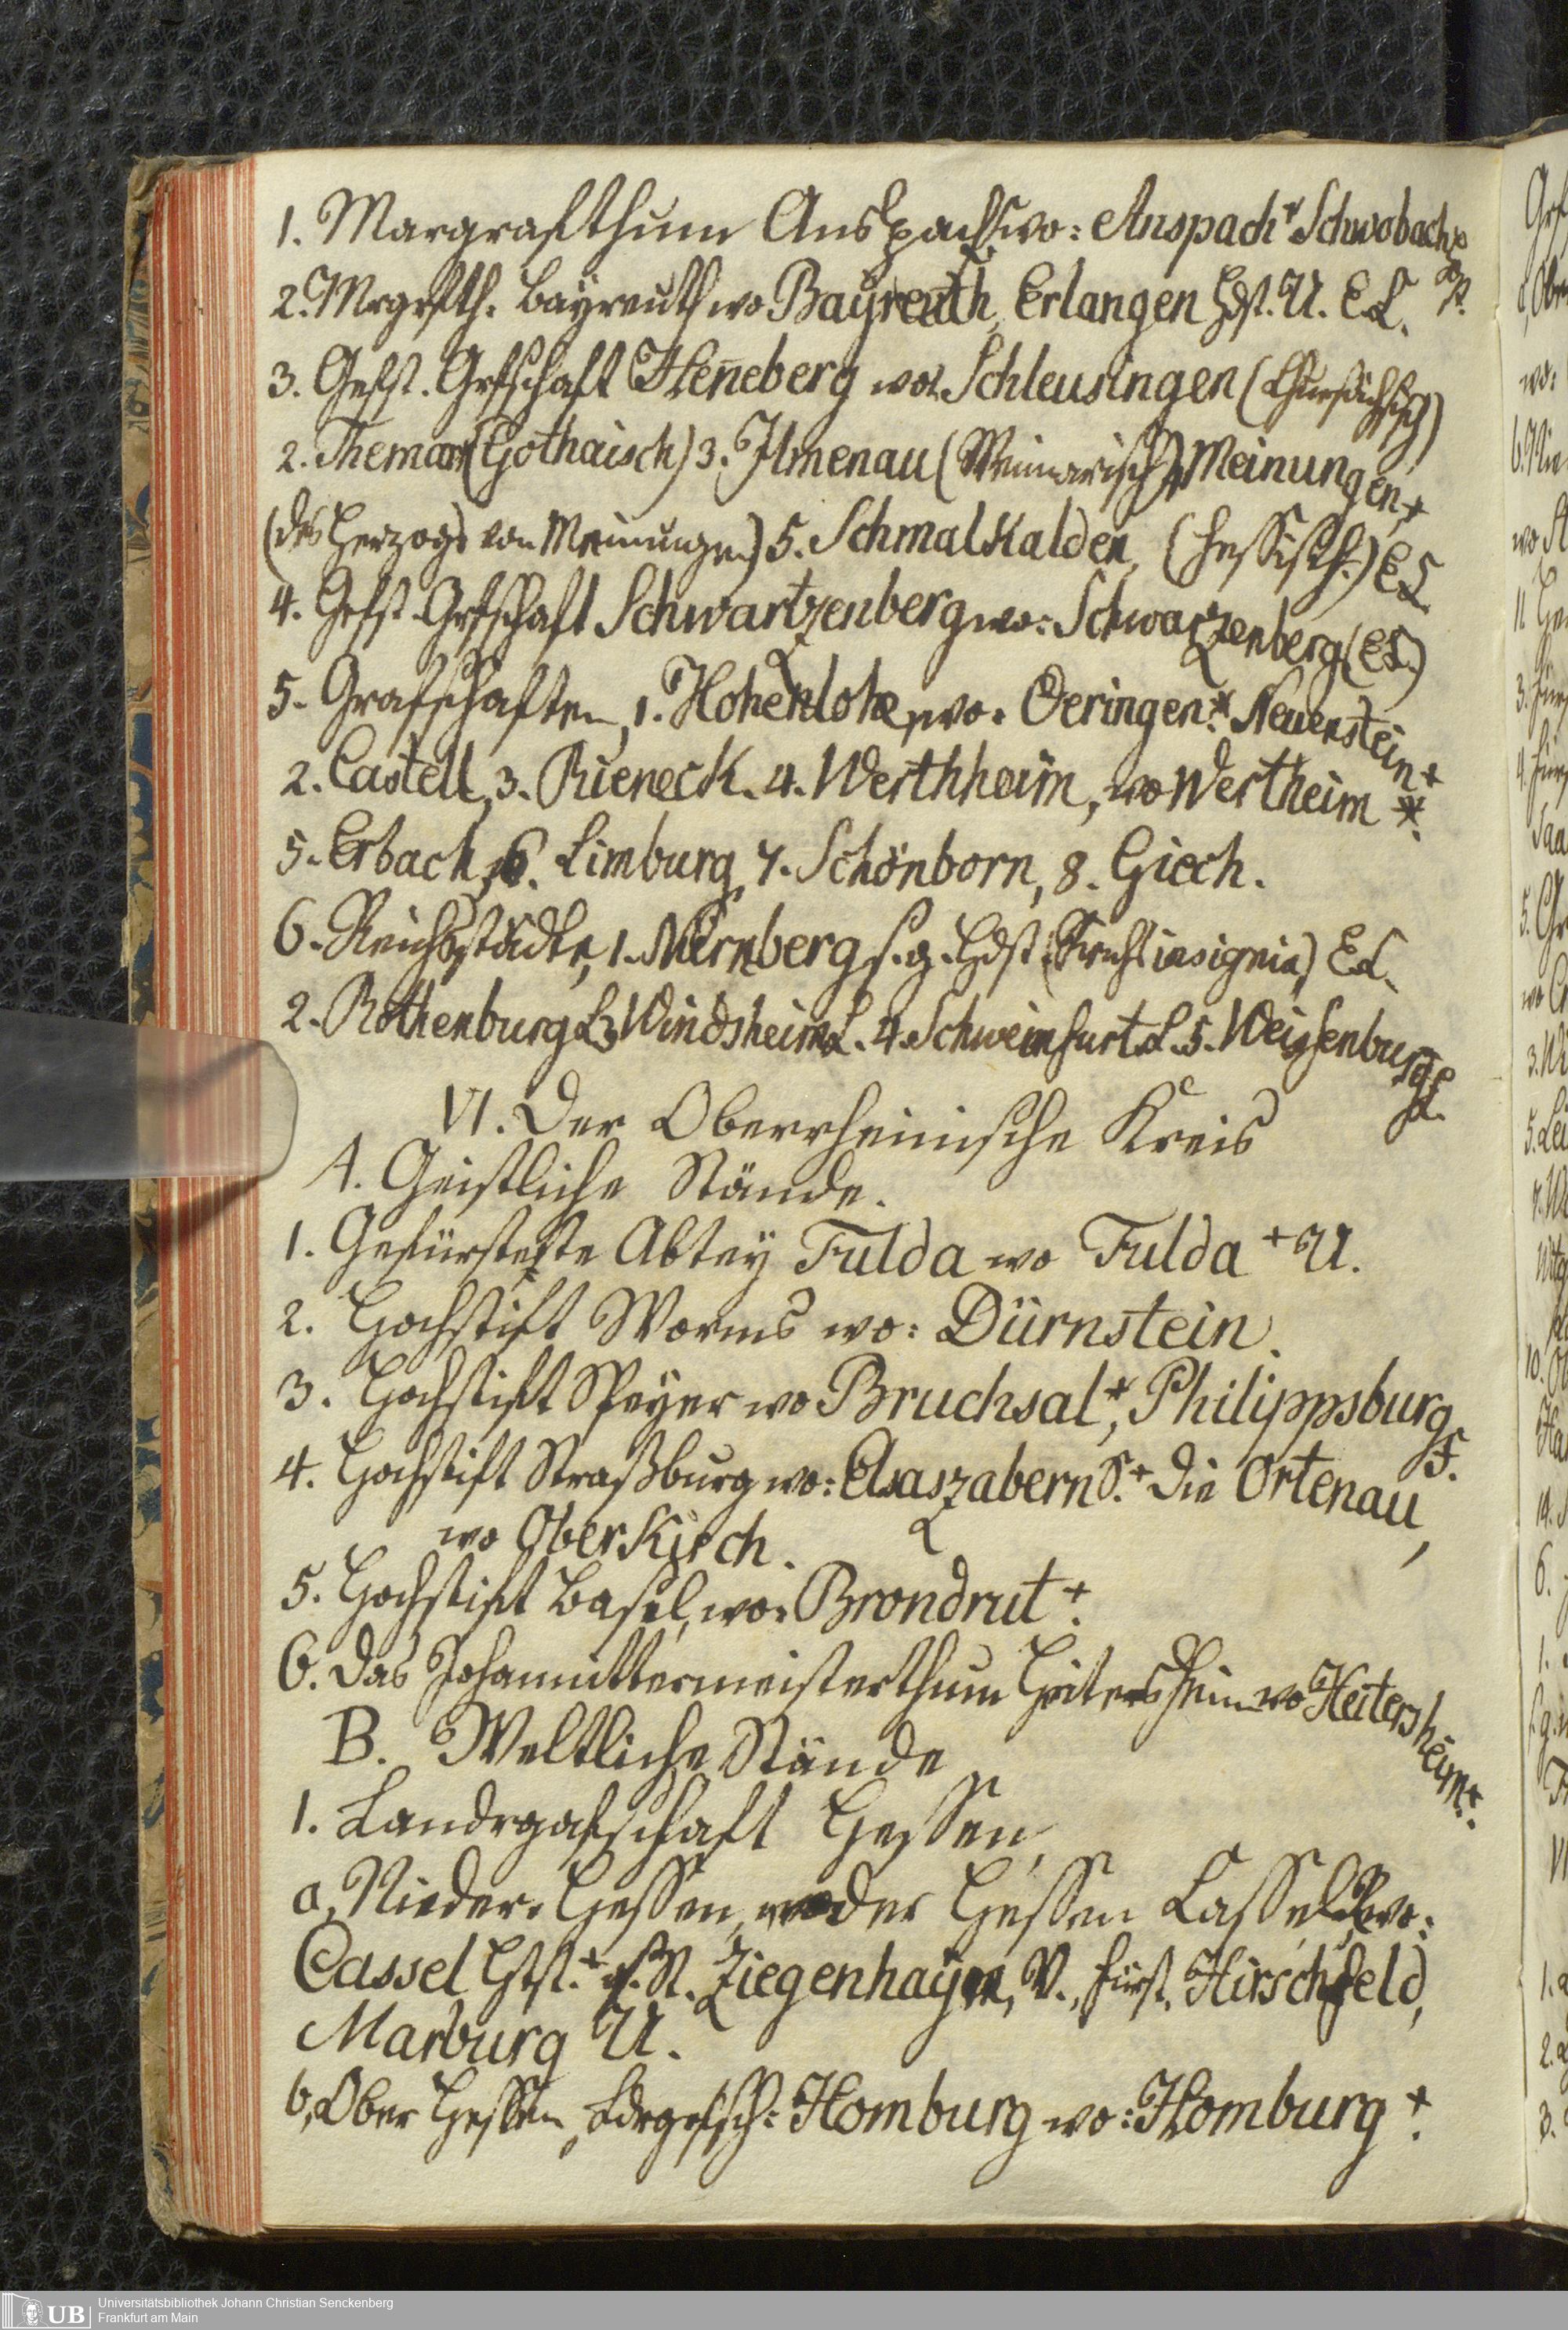 1. Margrafthum Anspach, wo: Anspach * Schwobach
2. Mrgrfth. Bayreuth wo Bayreuth, Erlangen Hdst. U. E.L.
3. Gefst. Grfschaft Heneberg wo: Schleusingen (Chursächsisch)
2. Themar (Gothaisch) 3. Ilmenau (Weimarisch) Meinungen, +
(des Herzogs von Meinungen) 5. Schmalkalden, (Hessisch.) E L
4. Gefst. Grfschaft Schwartzenberg wo: Schwarzenberg (E L.)
5. Grafschaften, 1. Hohenlohe, wo. Oeringen *. Neuenstein +
2. Castell, 3. Rieneck. 4. Werthheim, wo Wertheim *.
5. Erbach, 6. Limburg, 7. Schönborn, 8. Giech.
6. Reichsstädte, 1. Nürnberg s. g. Hdst. insignia) E L.
2. Rothenburg L 3 Windsheim L. 4. Schweinfurt L. 5. Weissenburg L.
VI. Der Oberrheinische Kreis
A. Geistliche Stände.
1. Gefürstete Abtey Fulda wo Fulda + U.
2. Hochstift Worms wo: Dürnstein.
3. Hochstift Speyer wo Bruchsal *, Philippsburg F.
4. Hochstift Straßburg wo: Elsaszabern S. + die Ortenau,
wo Oberkirch.
5. Hochstift Basel, wo: Brondrut +.
6. Das Johannittermeisterthum Heitersheim wo Heitersheim +.
B. Weltliche Stände
1. Landrgafschaft Hessen,
a, Nieder-Hessen, oder Hessen Cassel, wo:
Cassel Hst. + Ziegenhayn, V., fürst. Hirschfeld,
Marburg U.
b, Ober Hessen, Ldrgrfsch: Homburg wo: Homburg +.
UB
Universitätsbibliothek Johann Christian Senckenberg
Frankfurt am Main